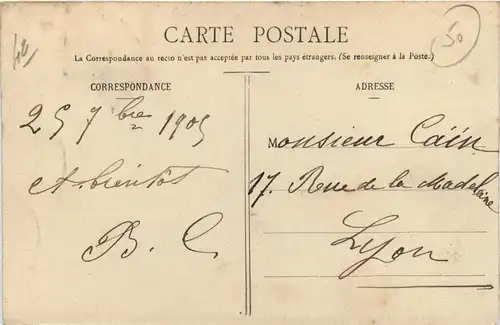 42
50
CARTE POSTALE
La Correspondance au recto n'est pas acceptée par tous les pays étrangers. (Se renseigner à la Poste.)
CORRESPONDANCE
25 7bre 1905
A bientôt
B. C.
ADRESSE
Monsieur Caïn
17. Rue de la Madeleine
Lyon